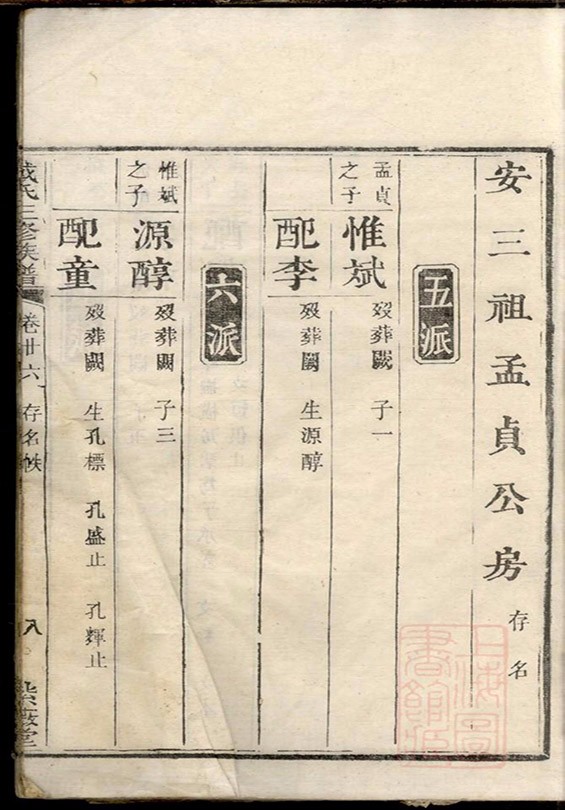 安三祖孟貞公房 存名
五派
孟貞之子
惟斌 歿葬闕 子一
配李 歿葬闕 生源醇
六派
惟斌之子
源醇 歿葬闕 子三
配童 歿葬闕 生孔標 孔盛止 孔輝止
氏三修族譜
卷廿六 存名帙
八
紫薇堂
上海圖書館藏